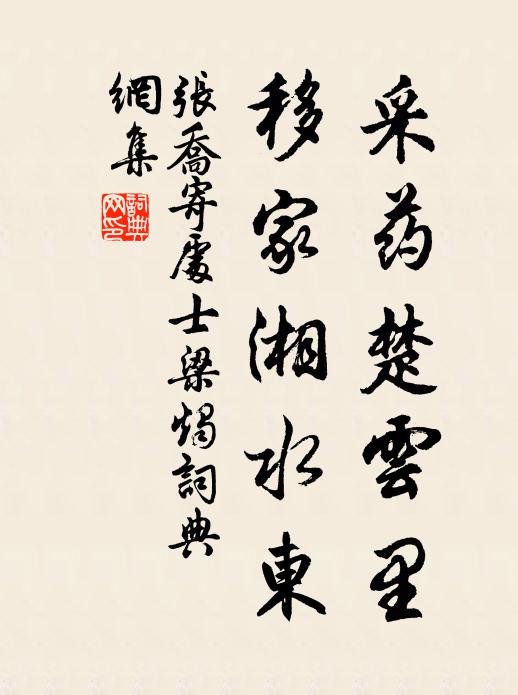 采药楚雲里
移家湘水東
張喬寄處士梁燭詞典
網集
詞典網印